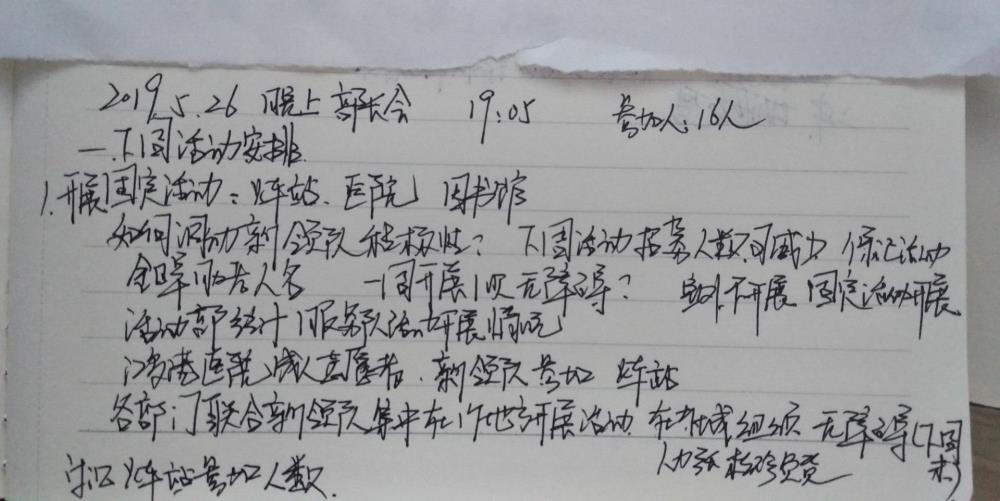 2019.5.26 晚上 部长会 19:05 参加人:16人
一.下周活动安排.
1.开展固定活动:火车站、医院 图书馆
如何调动新领队积极性? 下周活动招募人数可减少 保证活动
一周开展1次无障碍? 开展 固定活动开展
活动部统计 服务队活动开展情况
医院 成人志愿者、新领队参加 火车站
各部门联合新领队集中在1个地方开展活动. 无障碍(下周末)
人数
火车站参加人数.